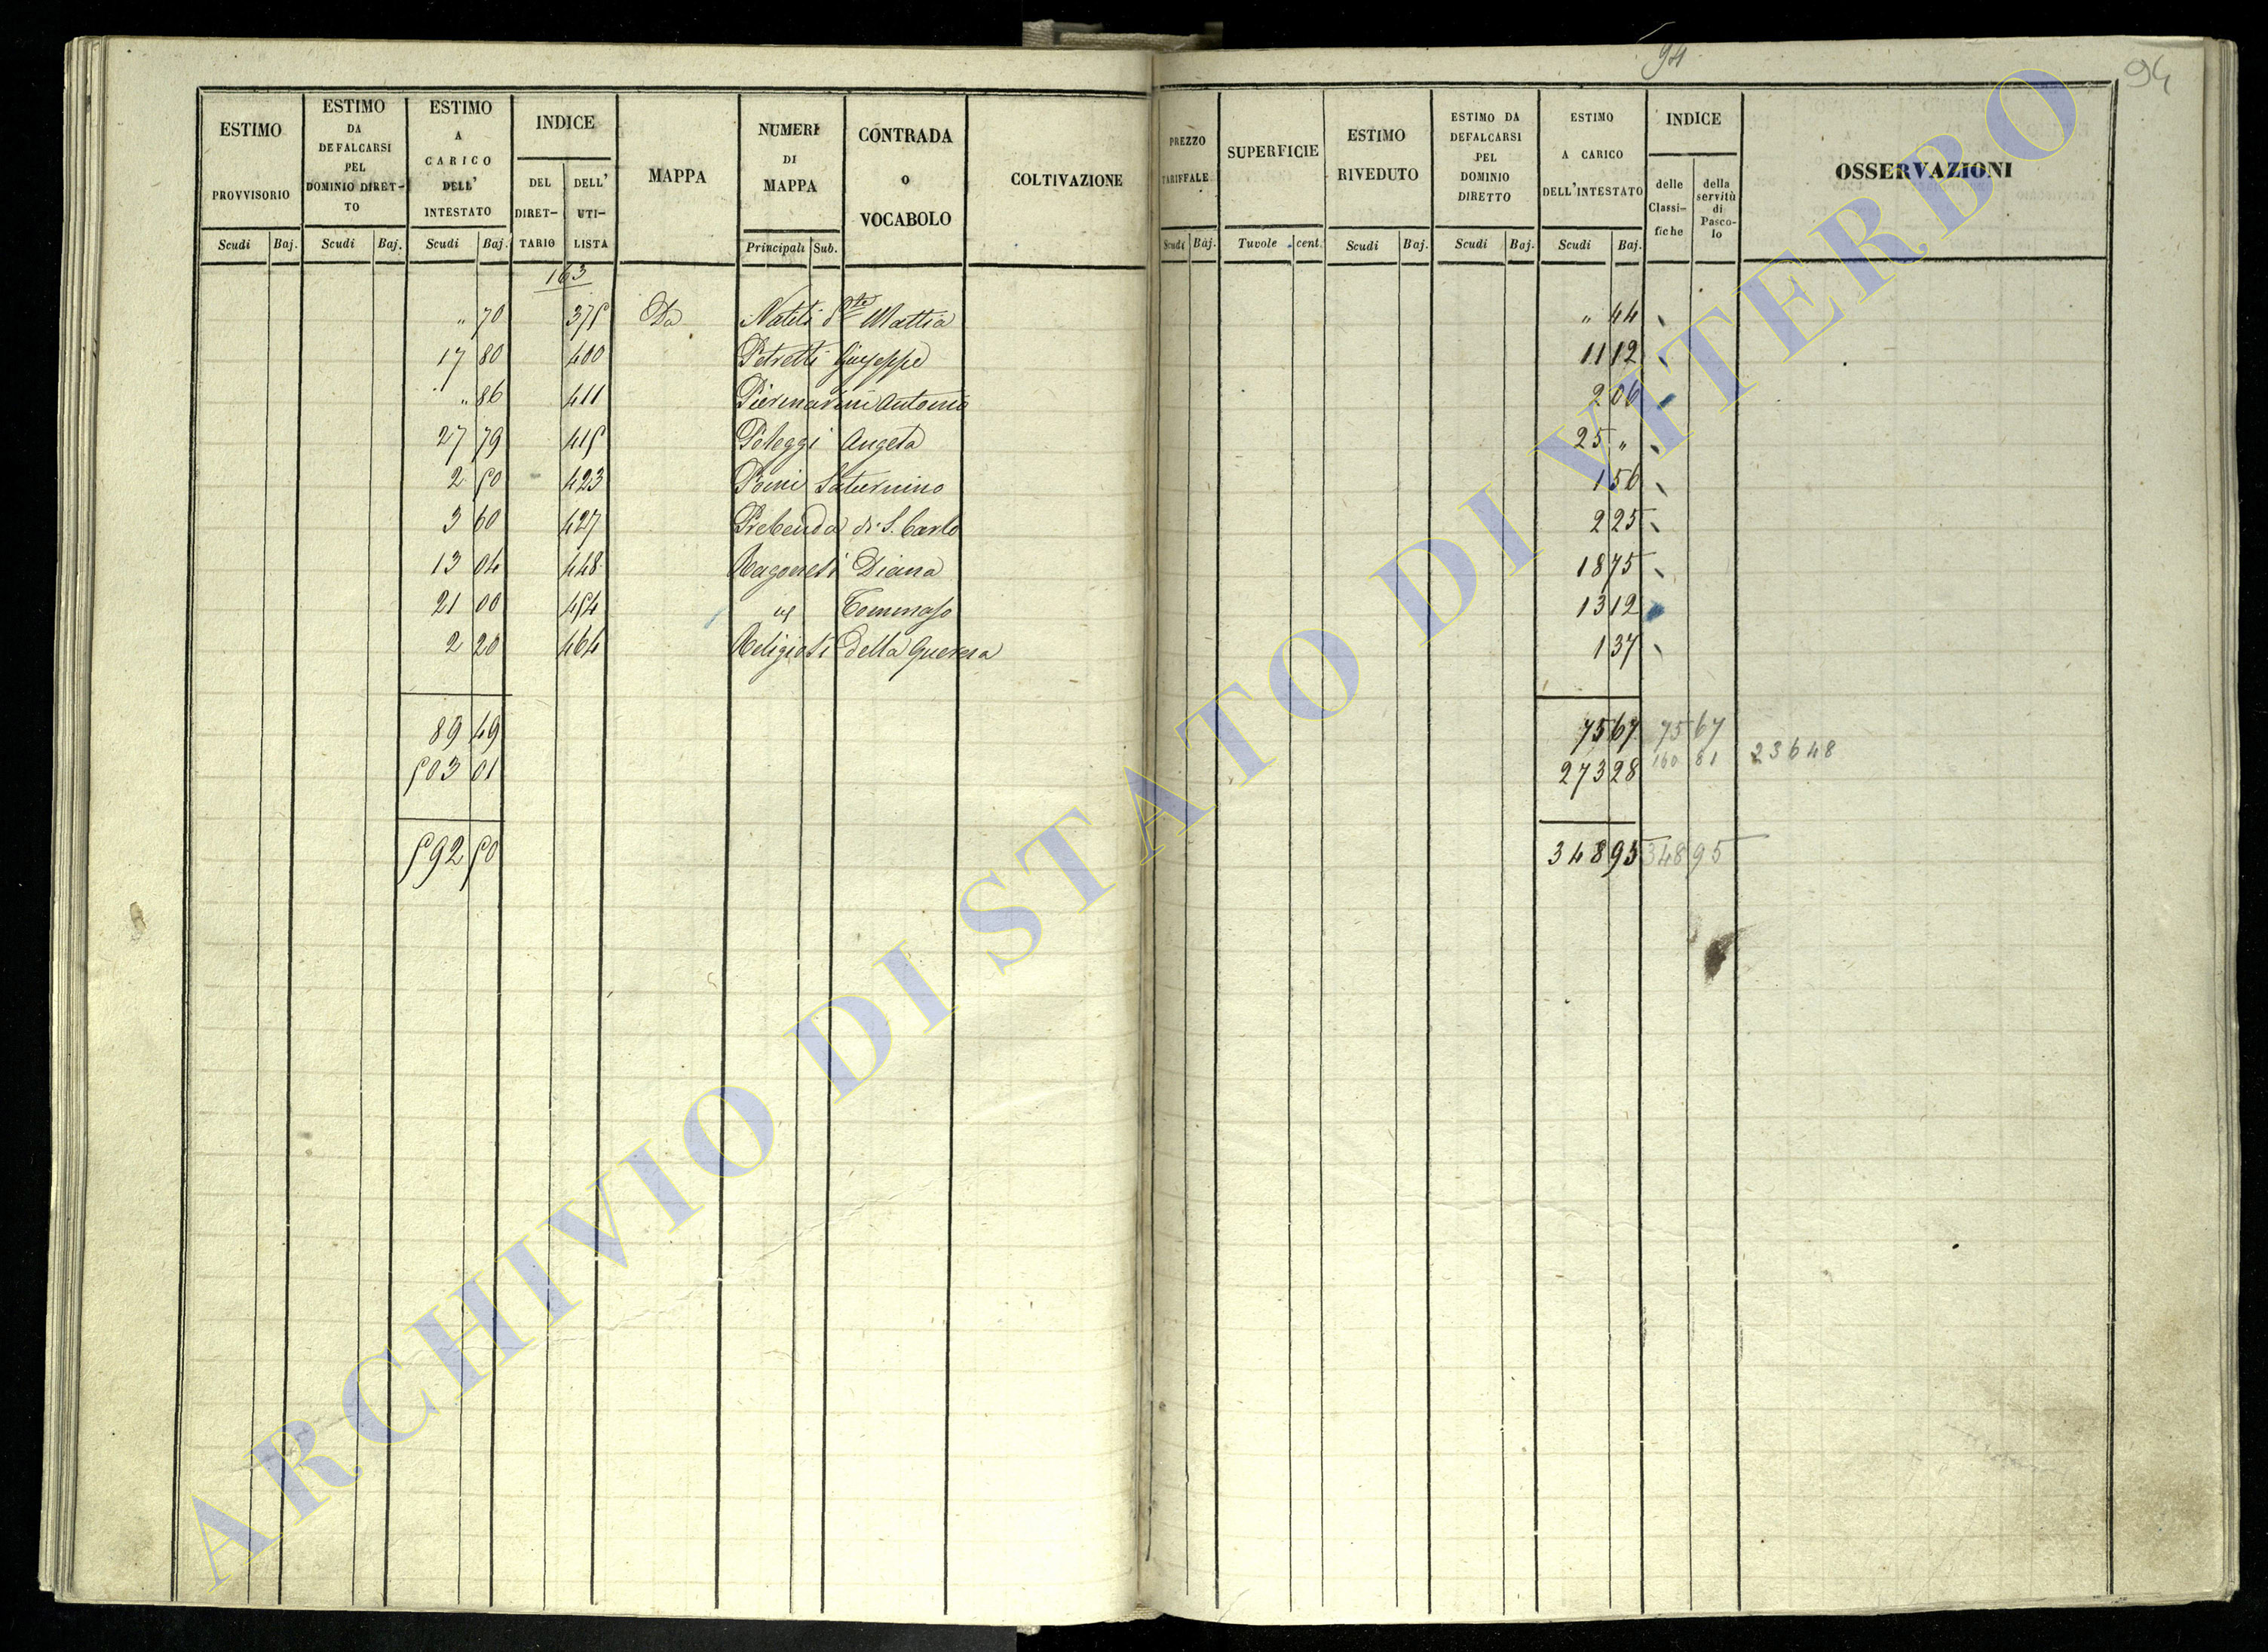 94
94
ESTIMO PROVVISORIO | ESTIMO DA DEFALCARSI PEL DOMINIO DIRET-TO | ESTIMO A CARICO DELL' INTESTATO | INDICE DEL DIRET-TARIO | DELL' UTI-LISTA | MAPPA | NUMERI DI MAPPA | CONTRADA O VOCABOLO | COLTIVAZIONE | PREZZO TARIFFALE | SUPERFICIE | ESTIMO RIVEDUTO | ESTIMO DA DEFALCARSI PEL DOMINIO DIRETTO | ESTIMO A CARICO DELL'INTESTATO | INDICE delle Classi-fiche | della servitù di Pasco-lo | OSSERVAZIONI
Scudi | Baj. | Scudi | Baj. | Scudi | Baj. | Principali | Sub. | Scudi | Baj. | Tavole | cent. | Scudi | Baj. | Scudi | Baj. | Scudi | Baj.
163
" 70 375 Da Natili Mattia " 44
17 80 400 Petretti Giuseppe 11 12
" 86 411 Piermarini Antonio 2 06
27 79 415 Poleggi Angela 25 "
2 50 423 Pomi Saturnino 1 56
3 60 427 Prebenda di S. Carlo 2 25
13 04 448 Ragonesi Diana 18 75
21 00 454 Tommaso 13 12
2 20 464 Religiosi della Quercia 1 37
89 49 75 67 75 67
503 01 273 28 160 81 236 48
592 50 348 95 348 95
ARCHIVIO DI STATO DI VITERBO